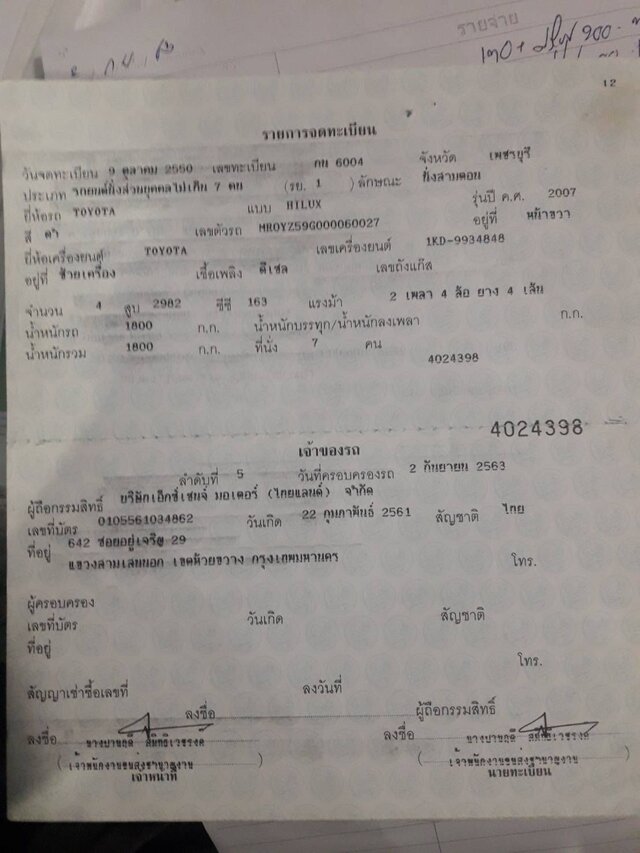 รายจ่าย
900
12
รายการจดทะเบียน
วันจดทะเบียน 9 ตุลาคม 2550 เลขทะเบียน กน 6004 จังหวัด เพชรบุรี
ประเภท รถยนต์นั่งส่วนบุคคลไม่เกิน 7 คน (รย. 1 ) ลักษณะ นั่งสามตอน
ยี่ห้อรถ TOYOTA แบบ HILUX รุ่นปี ค.ศ. 2007
สี ดำ เลขตัวรถ MR0YZ59G000060027 อยู่ที่ หน้าขวา
ยี่ห้อเครื่องยนต์ TOYOTA เลขเครื่องยนต์ 1KD-9934848
อยู่ที่ ซ้ายเครื่อง เชื้อเพลิง ดีเซล เลขถังแก๊ส
จำนวน 4 สูบ 2982 ซีซี 163 แรงม้า 2 เพลา 4 ล้อ ยาง 4 เส้น
น้ำหนักรถ 1800 ก.ก. น้ำหนักบรรทุก/น้ำหนักลงเพลา ก.ก.
น้ำหนักรวม 1800 ก.ก. ที่นั่ง 7 คน
4024398
4024398
เจ้าของรถ
ลำดับที่ 5 วันที่ครอบครองรถ 2 กันยายน 2563
ผู้ถือกรรมสิทธิ์ บริษัทเอ็กซ์เชนจ์ มอเตอร์ (ไทยแลนด์) จำกัด
เลขที่บัตร 0105561034862 วันเกิด 22 กุมภาพันธ์ 2561 สัญชาติ ไทย
ที่อยู่ 642 ซอยอยู่เจริญ 29
แขวงสามเสนนอก เขตห้วยขวาง กรุงเทพมหานคร โทร.
ผู้ครอบครอง
เลขที่บัตร วันเกิด สัญชาติ
ที่อยู่
โทร.
สัญญาเช่าซื้อเลขที่ ลงวันที่
ลงชื่อ ผู้ถือกรรมสิทธิ์
ลงชื่อ ลงชื่อ
( เจ้าพนักงานขนส่งชำนาญงาน ) ( เจ้าพนักงานขนส่งชำนาญงาน )
เจ้าหน้าที่ นายทะเบียน